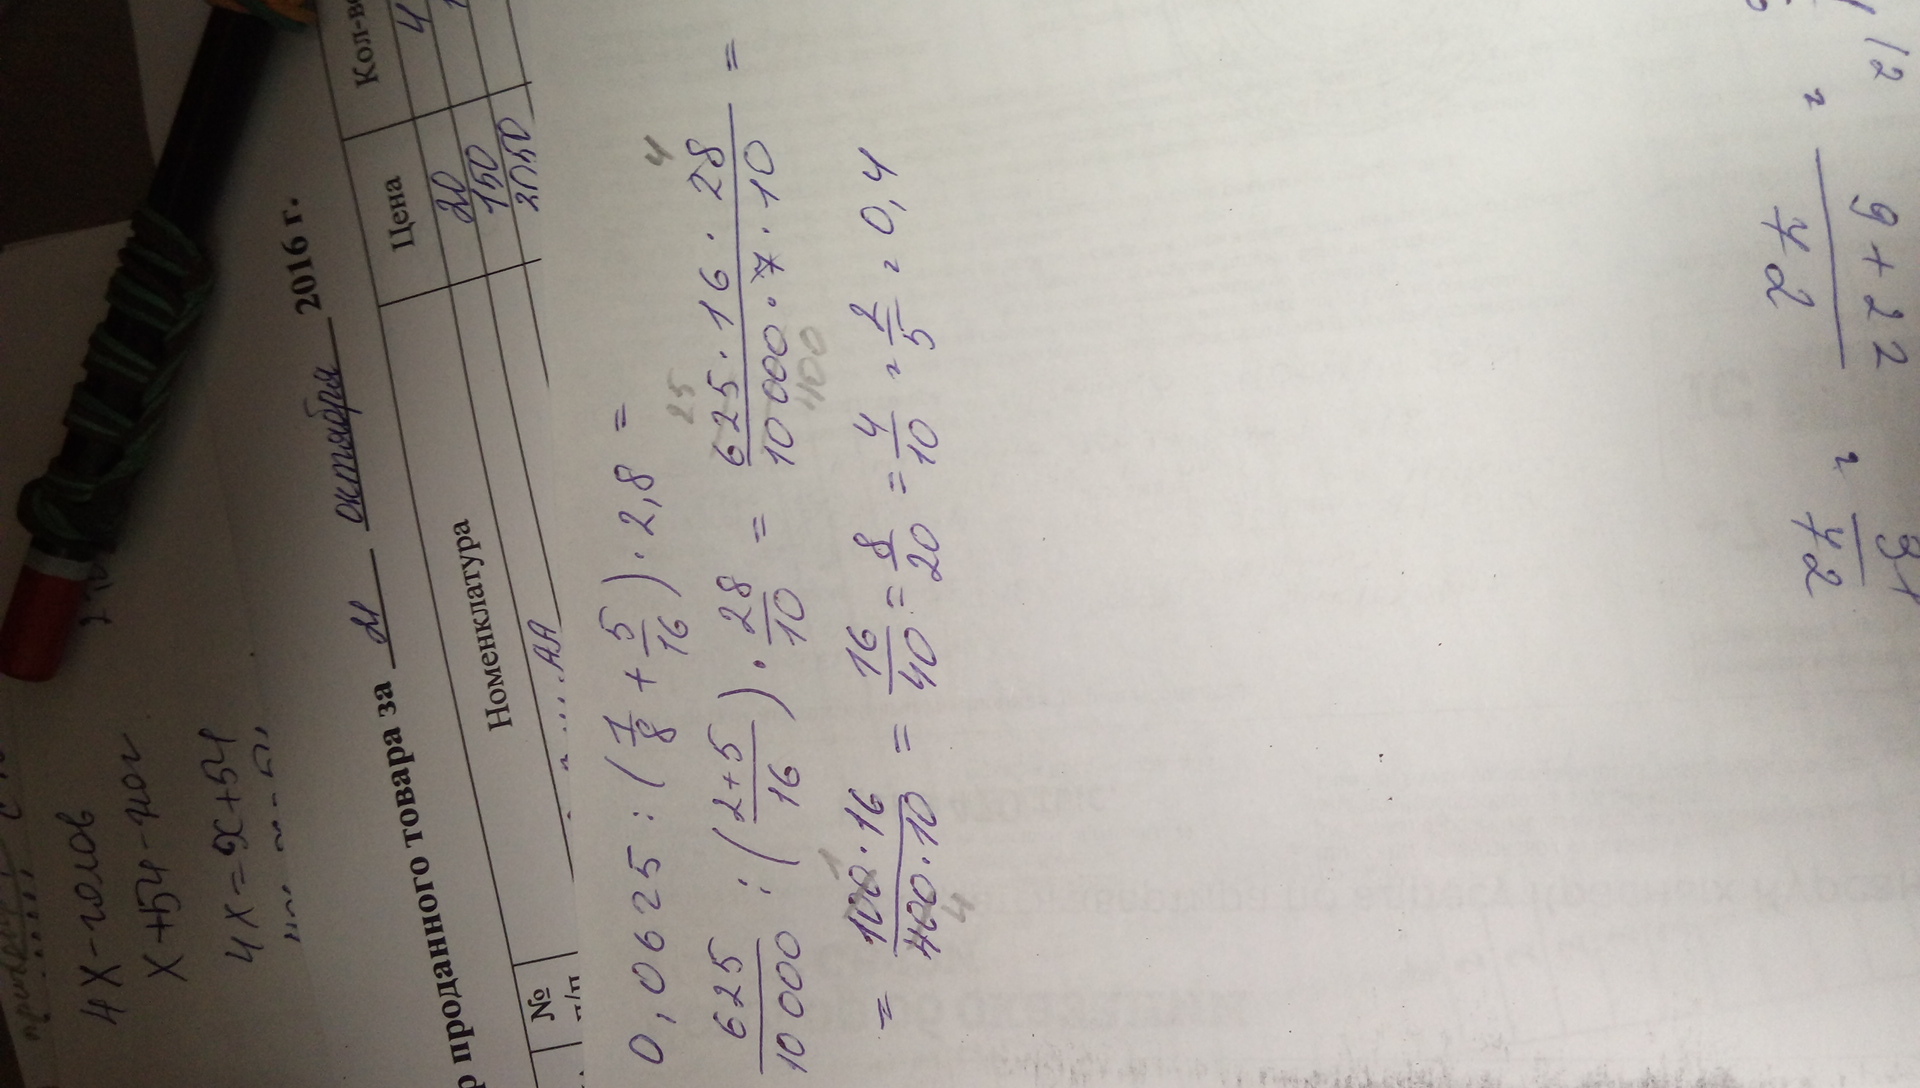 4х - голов
х+54 - ног
4х = х+54
р проданного товара за 21 октября 2016 г.
№ Номенклатура Цена Кол-во
п/п
20 4
150
2050
0,0625 : (1/8 + 5/16) · 2,8 =
625/10000 : (2+5/16) · 28/10 = 625 · 16 · 28/10000 · 7 · 10 =
25 4
400
= 100 · 16/400 · 10 = 16/40 = 8/20 = 4/10 = 2/5 = 0,4
1
4
9+22
42
42
12